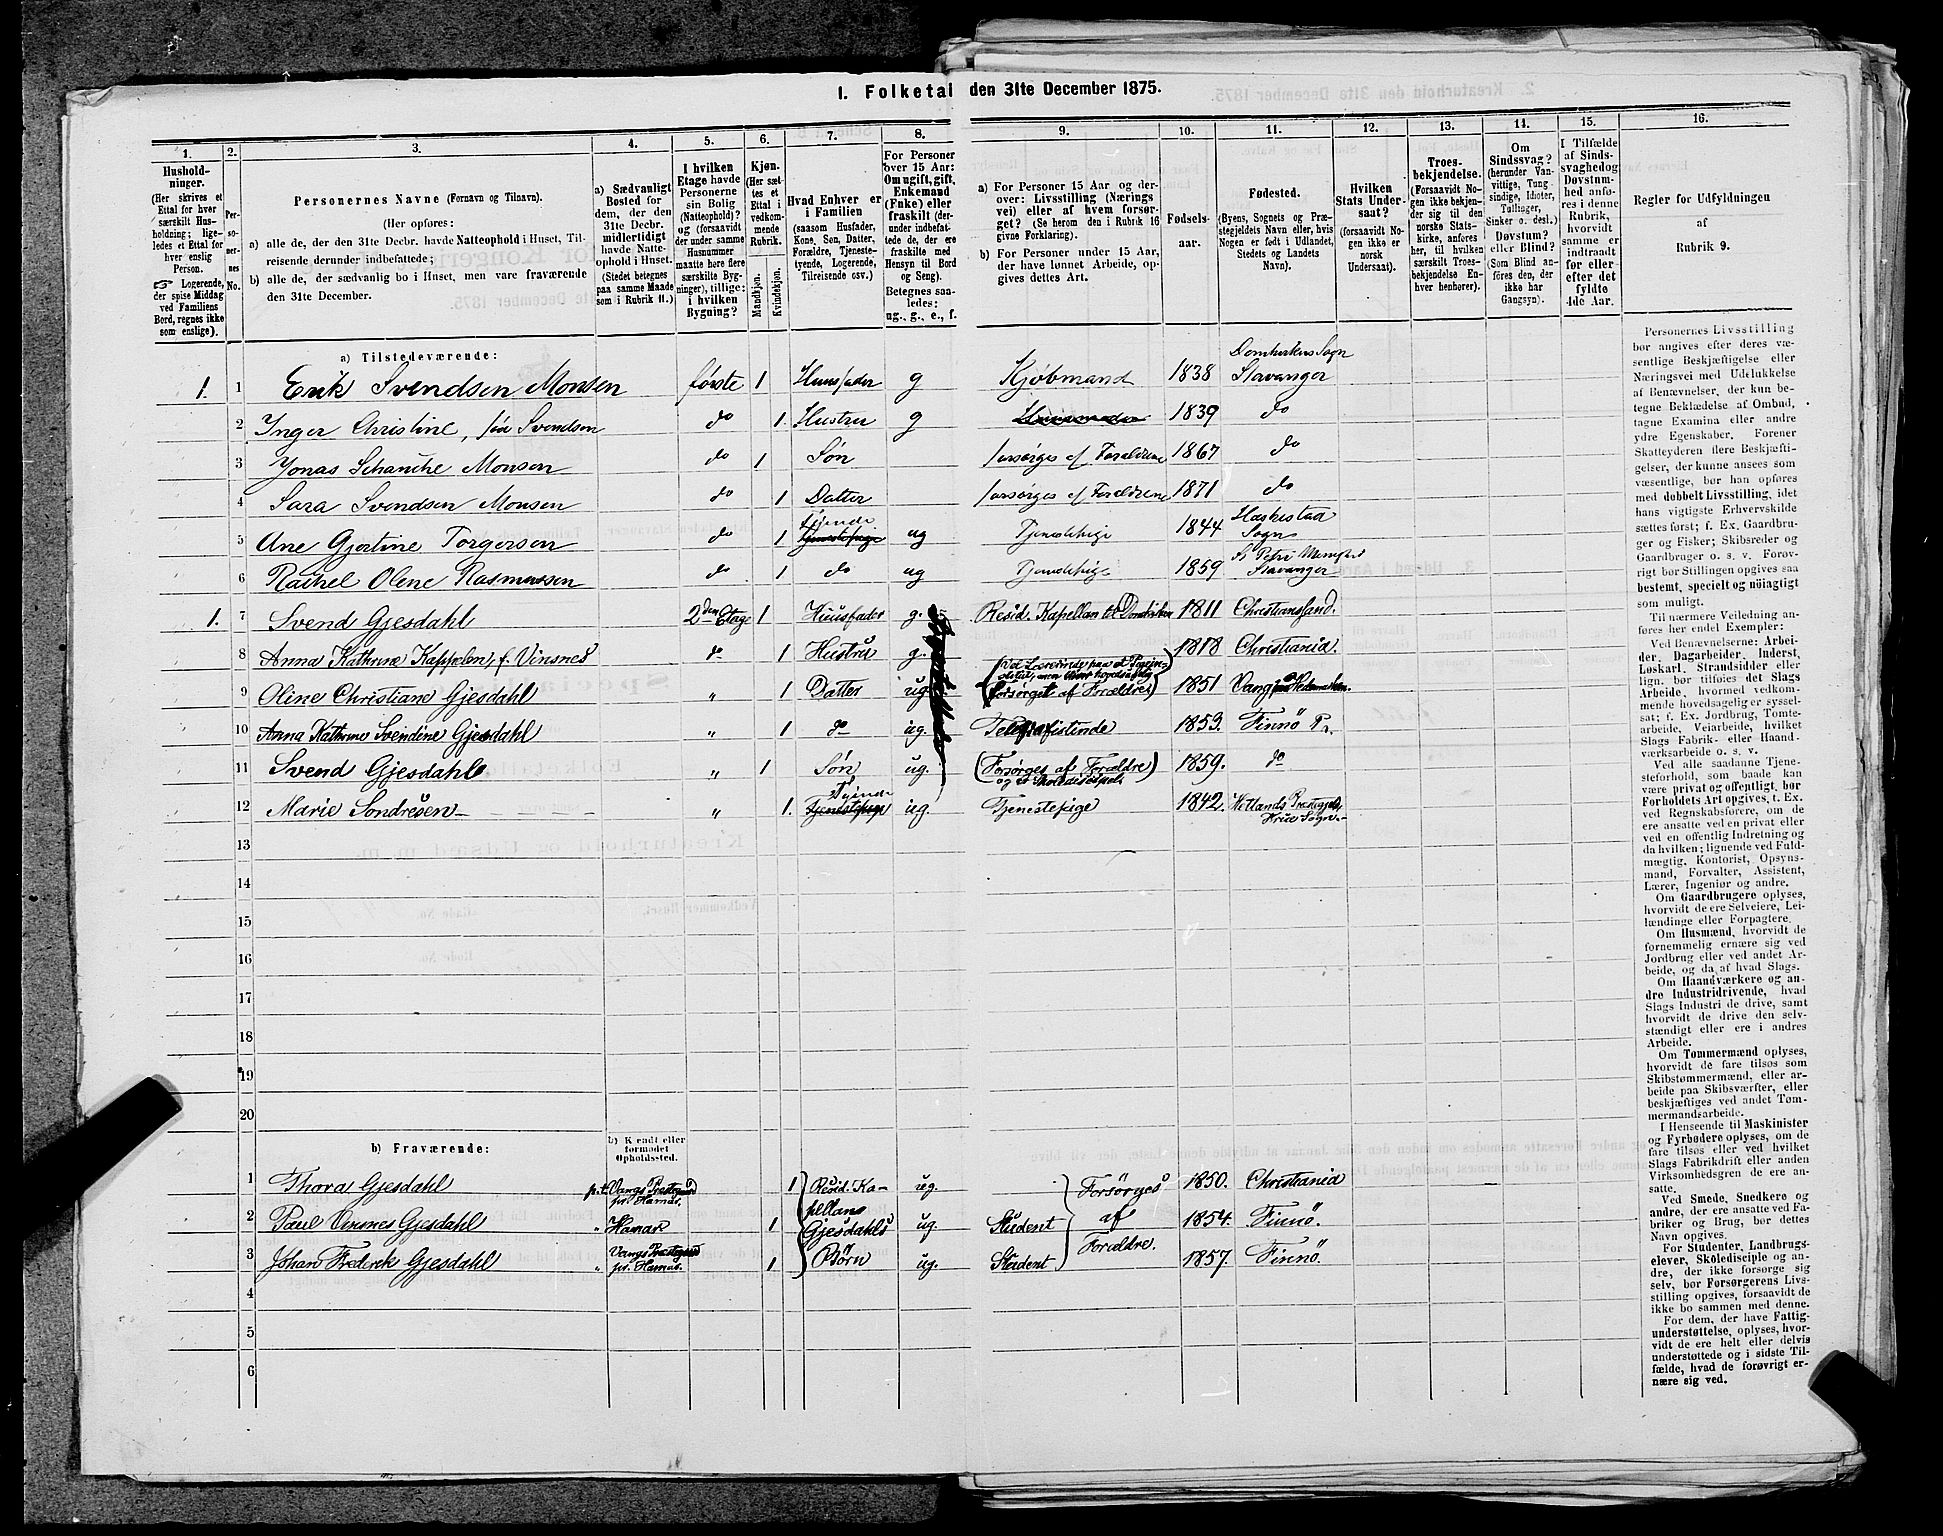 1. Folketal den 31te December 1875.
1. 2. 3. 4. 5. 6. 7. 8. 9. 10. 11. 12. 13. 14. 15. 16.
Hushold-
ninger.
(Her skrives et
Ettal for hver
særskilt Hus-
holdning; lige-
ledes et Ettal for
hver enslig
Person.
☞ Logerende,
der spise Middag
ved Familiens
Bord, regnes ikke
som enslige).
Per-
so-
ner-
nes
No.
Personernes Navne (Fornavn og Tilnavn).
(Her opføres:
a) alle de, der den 31te Decbr. havde Natteophold i Huset, Til-
reisende derunder indbefattede;
b) alle de, der sædvanlig bo i Huset, men vare fraværende
den 31te December.
a) Sædvanligt
Bosted for
dem, der den
31te Decbr.
midlertidigt
havde Natte-
ophold i Huset.
(Stedet betegnes
paa samme Maade
som i Rubrik 11.)
I hvilken
Etage havde
Personerne
sin Bolig
(Natteophold)?
og (forsaavidt
der under samme
Husnummer
maatte høre flere
særskilte Byg-
ninger), tillige:
i hvilken
Bygning?
Kjøn.
(Her sæt-
tes et
Ettal i
vedkom-
mende
Rubrik.
Mandkjøn.
Kvindekjøn.
Hvad Enhver er
i Familien
(saasom Husfader,
Kone, Søn, Datter,
Forældre, Tjeneste-
tyende, Logerende,
Tilreisende osv.)
For Personer
over 15 Aar:
Om ugift, gift,
Enkemand
(Enke) eller
fraskilt (der-
under indbefat-
tede de, der ere
fraskilte med
Hensyn til Bord
og Seng).
Betegnes saa-
ledes:
ug., g., e., f.
a) For Personer 15 Aar og der-
over: Livsstilling (Nærings
vei) eller af hvem forsør-
get? (Se herom den i Rubrik 16
givne Forklaring).
b) For Personer under 15 Aar,
der have lønnet Arbeide, op-
gives dettes Art.
Fødsels-
aar.
Fødested.
(Byens, Sognets og Præ-
stegjeldets Navn eller, hvis
Nogen er født i Udlandet,
Stedets og Landets
Navn).
Hvilken
Stats Under-
saat?
(forsaavidt No-
gen ikke er
norsk
Undersaat).
Troes-
bekjendelse.
(Forsaavidt No-
gen ikke bekjen-
der sig til den
norske Stats-
kirke, anføres
her, til hvilken
særskilt Troes-
bekjendelse En-
hver henhører).
Om
Sindssvag?
(herunder Van-
vittige, Tung-
sindige, Idioter,
Tullinger,
Sinker o. desl.)
Døvstum?
eller Blind?
(Som Blind an-
føres den, der
ikke har
Gangsyn).
I Tilfælde
af Sinds-
svaghed og
Døvstum-
hed anfø-
res i denne
Rubrik,
hvorvidt
samme er
indtraadt
før eller ef-
ter det
fyldte
4de Aar.
Regler for Udfyldningen
af
Rubrik 9.
a) Tilstedeværende:
1. 1 Erik Svendsen Monsen første 1 Huusfader g Kjøbmand 1838 Domkirkens Sogn Stavanger
2 Inger Christine, før Svendsen do 1. Hustru g 1839 do
3 Jonas Schanche Monsen do 1 Søn forsørges af Forældrene 1867 do
4 Sara Svendsen Monsen do 1 Datter forsørges af Forældrene 1871 do
5 Ane Gjertine Torgersen do 1 Tjenestepige Tjende ug Tjenestepige 1844 Haskestad Sogn
6 Rachel Olene Rasmussen do 1 do ug Tjenestepige 1859 St Petri Menighed Stavanger
1. 7 Svend Gjesdahl 2den Etage 1 Huusfader g. Resid. Kapellan til Domkirken 1811 Christianssand.
8 Anna Kathrine Kappelen, f. Vinsnes do 1 Hustru g. 1818 Christiania.
9 Oline Christiane Gjesdahl " 1 Datter ug. (Forsørget af Forældre) 1851 Vang paa Hedemarken.
10 Anna Kathrine Svendine Gjesdahl " 1 do ug. Telegrafistinde 1853. Finnø P.
11 Svend Gjesdahl " 1 Søn ug. (Forsørges af Forældre) og er Skoledisipel. 1859. do
12 Marie Sondresen " 1. Tjenestepige Tjende ug. Tjenestepige 1842. Hetlands Præstegjeld, Sogn.
13
14
15
16
17
18
19
20
b) Fraværende:
b) Kjendt eller
formodet
Opholdssted.
1 Thora Gjesdahl p. t. Vangs Præstegaard pr. Hamar. 1 Resid. Ka- ug. Forsørges 1850. Christiania
2 Paul Vinsnes Gjesdahl " Hamar 1 pellan Gjesdahls ug. Student af 1854. Finnø.
3 Johan Frederik Gjesdahl " Vangs Præstegaard pr. Hamar. 1 Børn ug. Student Forældre. 1857. Finnø.
4
5
6
Personernes Livsstilling
bør angives efter deres væ-
sentlige Beskjæftigelse eller
Næringsvei med Udelukkelse
af Benævnelser, der kun be-
tegne Beklædelse af Ombud,
tagne Examina eller andre
ydre Egenskaber. Forener
Skatteyderen flere Beskjæfti-
gelser, der kunne ansees som
væsentlige, bør han opføres
med dobbelt Livsstilling, idet
hans vigtigste Erhvervskilde
sættes først; f. Ex. Gaardbru-
ger og Fisker; Skibsreder og
Gaardbruger o. s. v. Forøv-
rigt bør Stillingen opgives saa
bestemt, specielt og nøiagtigt
som muligt.
Til nærmere Veiledning an-
føres her endel Exempler:
Ved Benævnelserne: Arbei-
der, Dagarbeider, Inderst,
Løskarl, Strandsidder eller
lign. bør tilføies det Slags
Arbeide, hvormed vedkom-
mende hovedsagelig er syssel-
sat; f. Ex. Jordbrug, Tomte-
arbeide, Veiarbeide, hvilket
Slags Fabrik- eller Haand-
værksarbeide o. s. v.
Ved alle saadanne Tjene-
steforhold, som baade kan
være privat og offentligt, bør
Forholdets Art opgives, t. Ex.
ved Regnskabsførere, om de
ere ansatte ved en privat eller
ved en offentlig Indretning og
da hvilken; lignende ved Fuld-
mægtig, Kontorist, Opsyns-
mand, Forvalter, Assistent,
Lærer, Ingeniør og andre.
Om Gaardbrugere oplyses,
hvorvidt de ere Selveiere, Lei-
lændinge eller Forpagtere.
Om Husmænd, hvorvidt de
fornemmelig ernære sig ved
Jordbrug eller ved andet Ar-
beide, og da af hvad Slags.
Om Haandværkere og an-
dre Industridrivende, hvad
Slags Industri de drive, samt
hvorvidt de drive den selv-
stændigt eller ere i andres
Arbeide.
Om Tømmermænd oplyses,
hvorvidt de fare tilsøs som
Skibstømmermænd, eller ar-
beide paa Skibsværfter, eller
beskjæftiges ved andet Tøm-
mermandsarbeide.
I Henseende til Maskinister
og Fyrbødere oplyses, om de
fare tilsøs eller ved hvilket
Slags Fabrikdrift eller anden
Virksomhedsgren de ere an-
satte.
Ved Smede, Snedkere og
andre, der ere ansatte ved Fa-
briker og Brug, bør dettes
Navn opgives.
For Studenter, Landbrugs-
elever, Skoledisciple og an-
dre, der ikke forsørge sig
selv, bør Forsørgerens Livs-
stilling opgives, forsaavidt de
ikke bo sammen med denne.
For dem, der have Fattig-
understøttelse, oplyses, hvor-
vidt de ere helt eller delvis
understøttede og i sidste Til-
fælde, hvad de forøvrigt er-
nære sig ved.